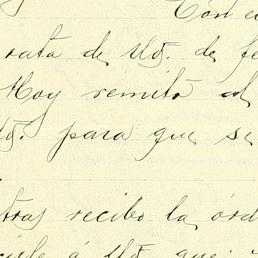 Con e
rata de Ud. de fe
Hoy remito al
Ud. para que se
tras recibo la órd
cirle á Ud. que